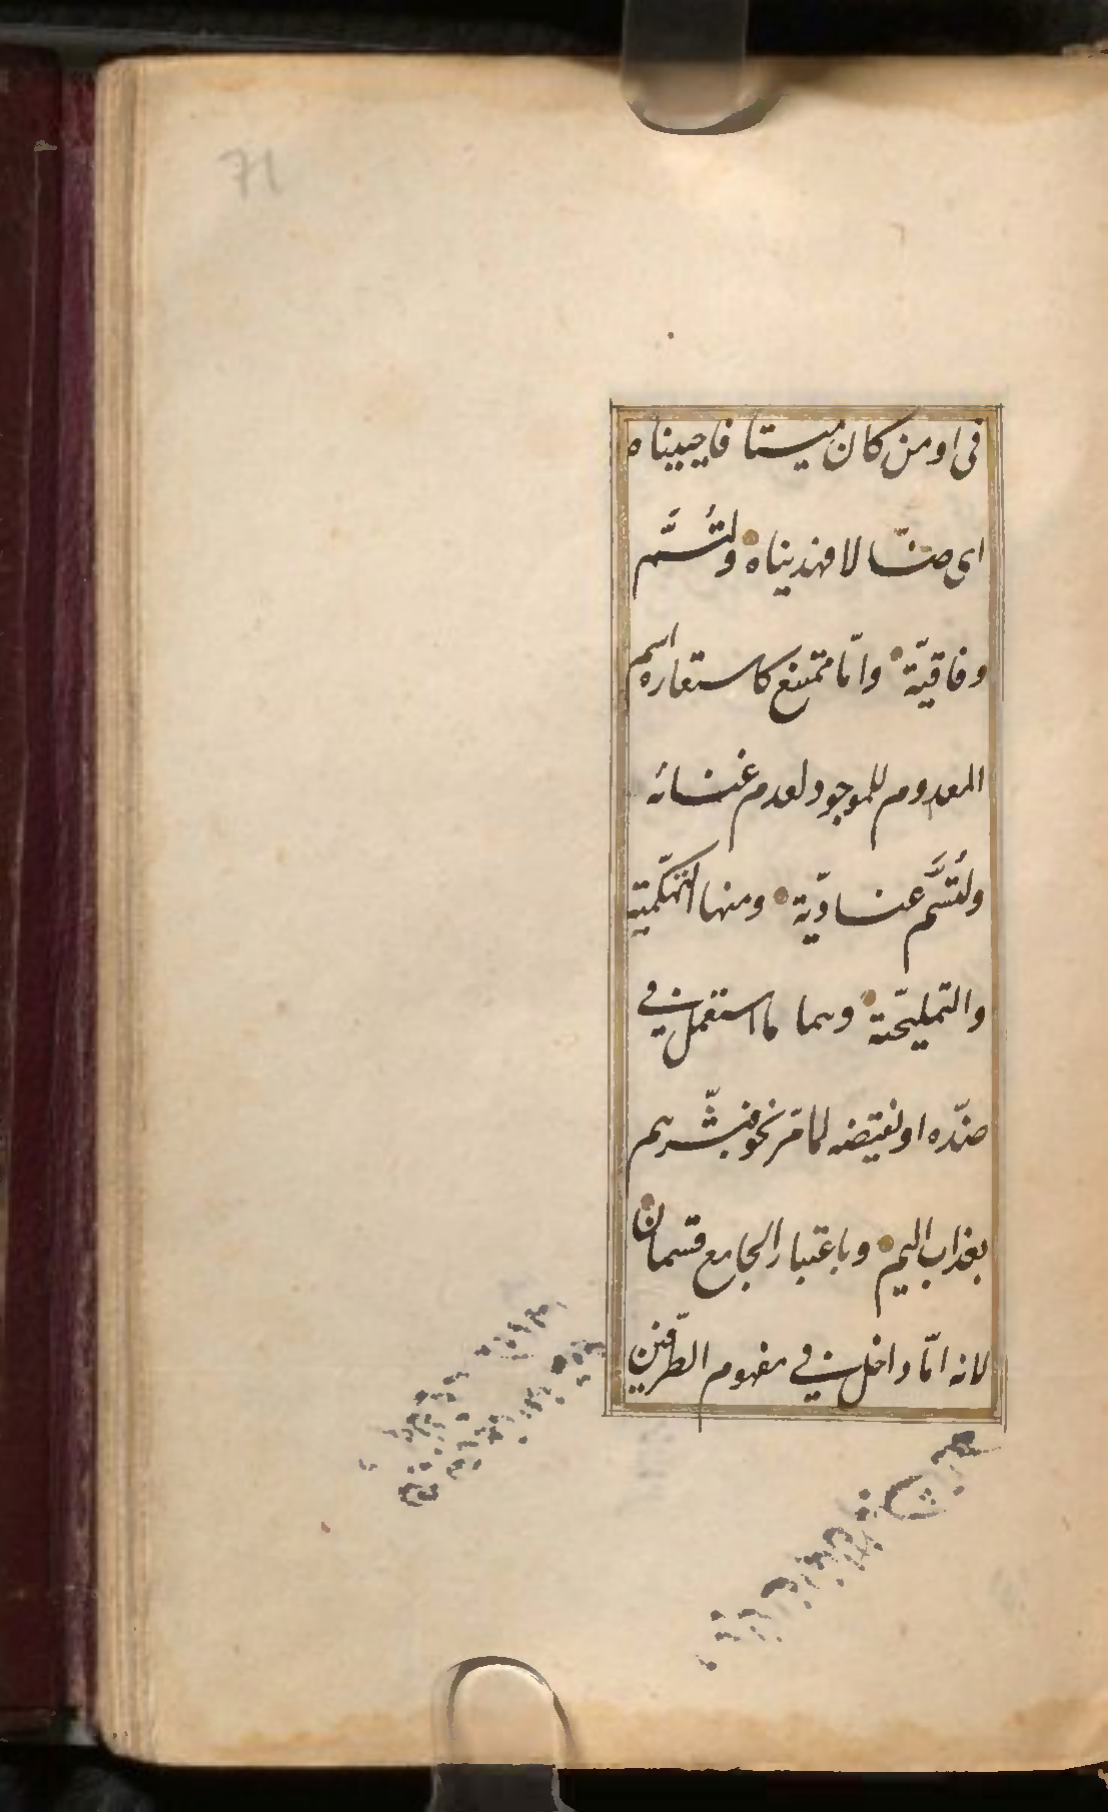 71
فى او من كان ميتا فاحييناه
اى ضالا فهديناه ولتُسَمَّ
وفاقيّة وامّا ممتنع كاستعارة اسم
المعدوم للموجود لعدم غنائه
ولتُسَمَّ عناديّة ومنها التهكّميّة
والتمليحيّة وهما ما استعمل فى
ضدّه او نقيضه لما مرّ نحو فبشّرهم
بعذاب اليم وباعتبار الجامع قسمان
لانه امّا داخل فى مفهوم الطرفين